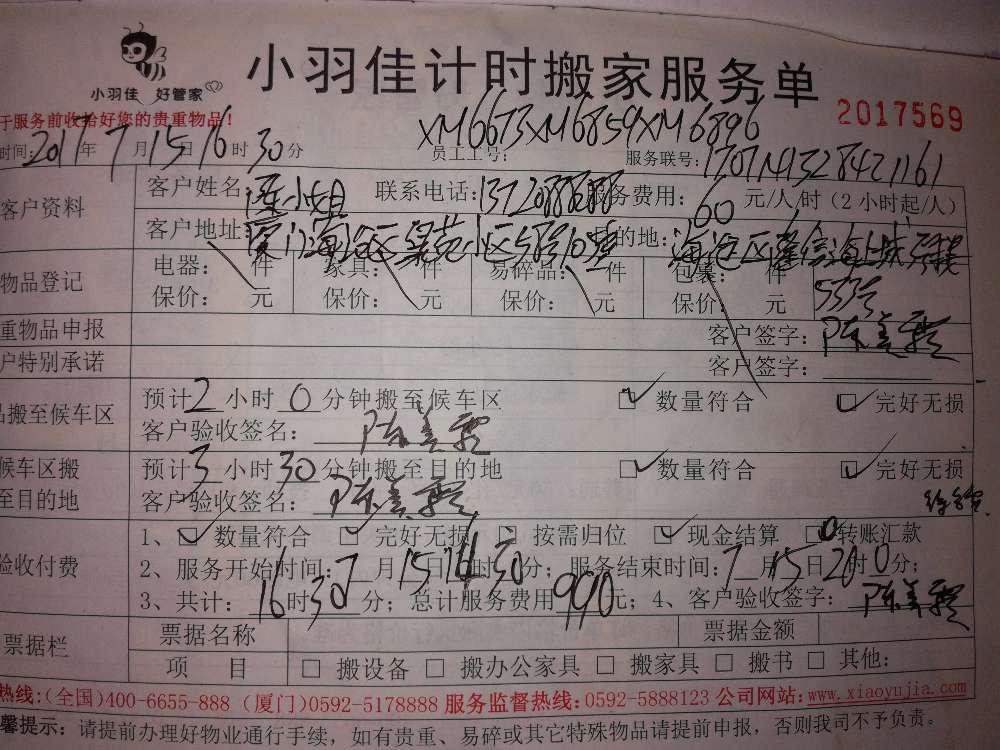 小羽佳 好管家
小羽佳计时搬家服务单
2017569
于服务前收拾好您的贵重物品!
时间: 2017 年 7 月 15 日 16 时 30 分 员工工号: XM6673XM6859XM6896 服务联号:
客户资料 客户姓名: 陈小姐 联系电话: 服务费用: 60 元/人/时(2小时起/人)
客户地址: 厦门海沧区 小区 的地: 海沧区 信海上城
物品登记 电器: 件 家具: 件 易碎品: 件 包裹: 件
保价: 元 保价: 元 保价: 元 保价: 元 553号
重物品申报 客户签字: 陈美霞
户特别承诺 客户签字:
品搬至候车区 预计 2 小时 0 分钟搬至候车区 ☑ 数量符合 ☑ 完好无损
客户验收签名: 陈美霞
候车区搬至目的地 预计 3 小时 30 分钟搬至目的地 ☑ 数量符合 ☑ 完好无损
客户验收签名: 陈美霞
验收付费 1、☑ 数量符合 ☑ 完好无损 ☑ 按需归位 ☑ 现金结算 □ 转账汇款
2、服务开始时间: 7 月 15 日 时 30 分; 服务结束时间: 7 月 15 日 20 0 分;
3、共计: 16 时 30 分; 总计服务费用 990 元; 4、客户验收签字: 陈美霞
票据栏 票据名称 票据金额
项 目 □ 搬设备 □ 搬办公家具 □ 搬家具 □ 搬书 □ 其他:
热线:(全国)400-6655-888 (厦门)0592-5178888 服务监督热线:0592-5888123 公司网站:www.xiaoyujia.com
馨提示: 请提前办理好物业通行手续, 如有贵重、易碎或其它特殊物品请提前申报, 否则我司不予负责。